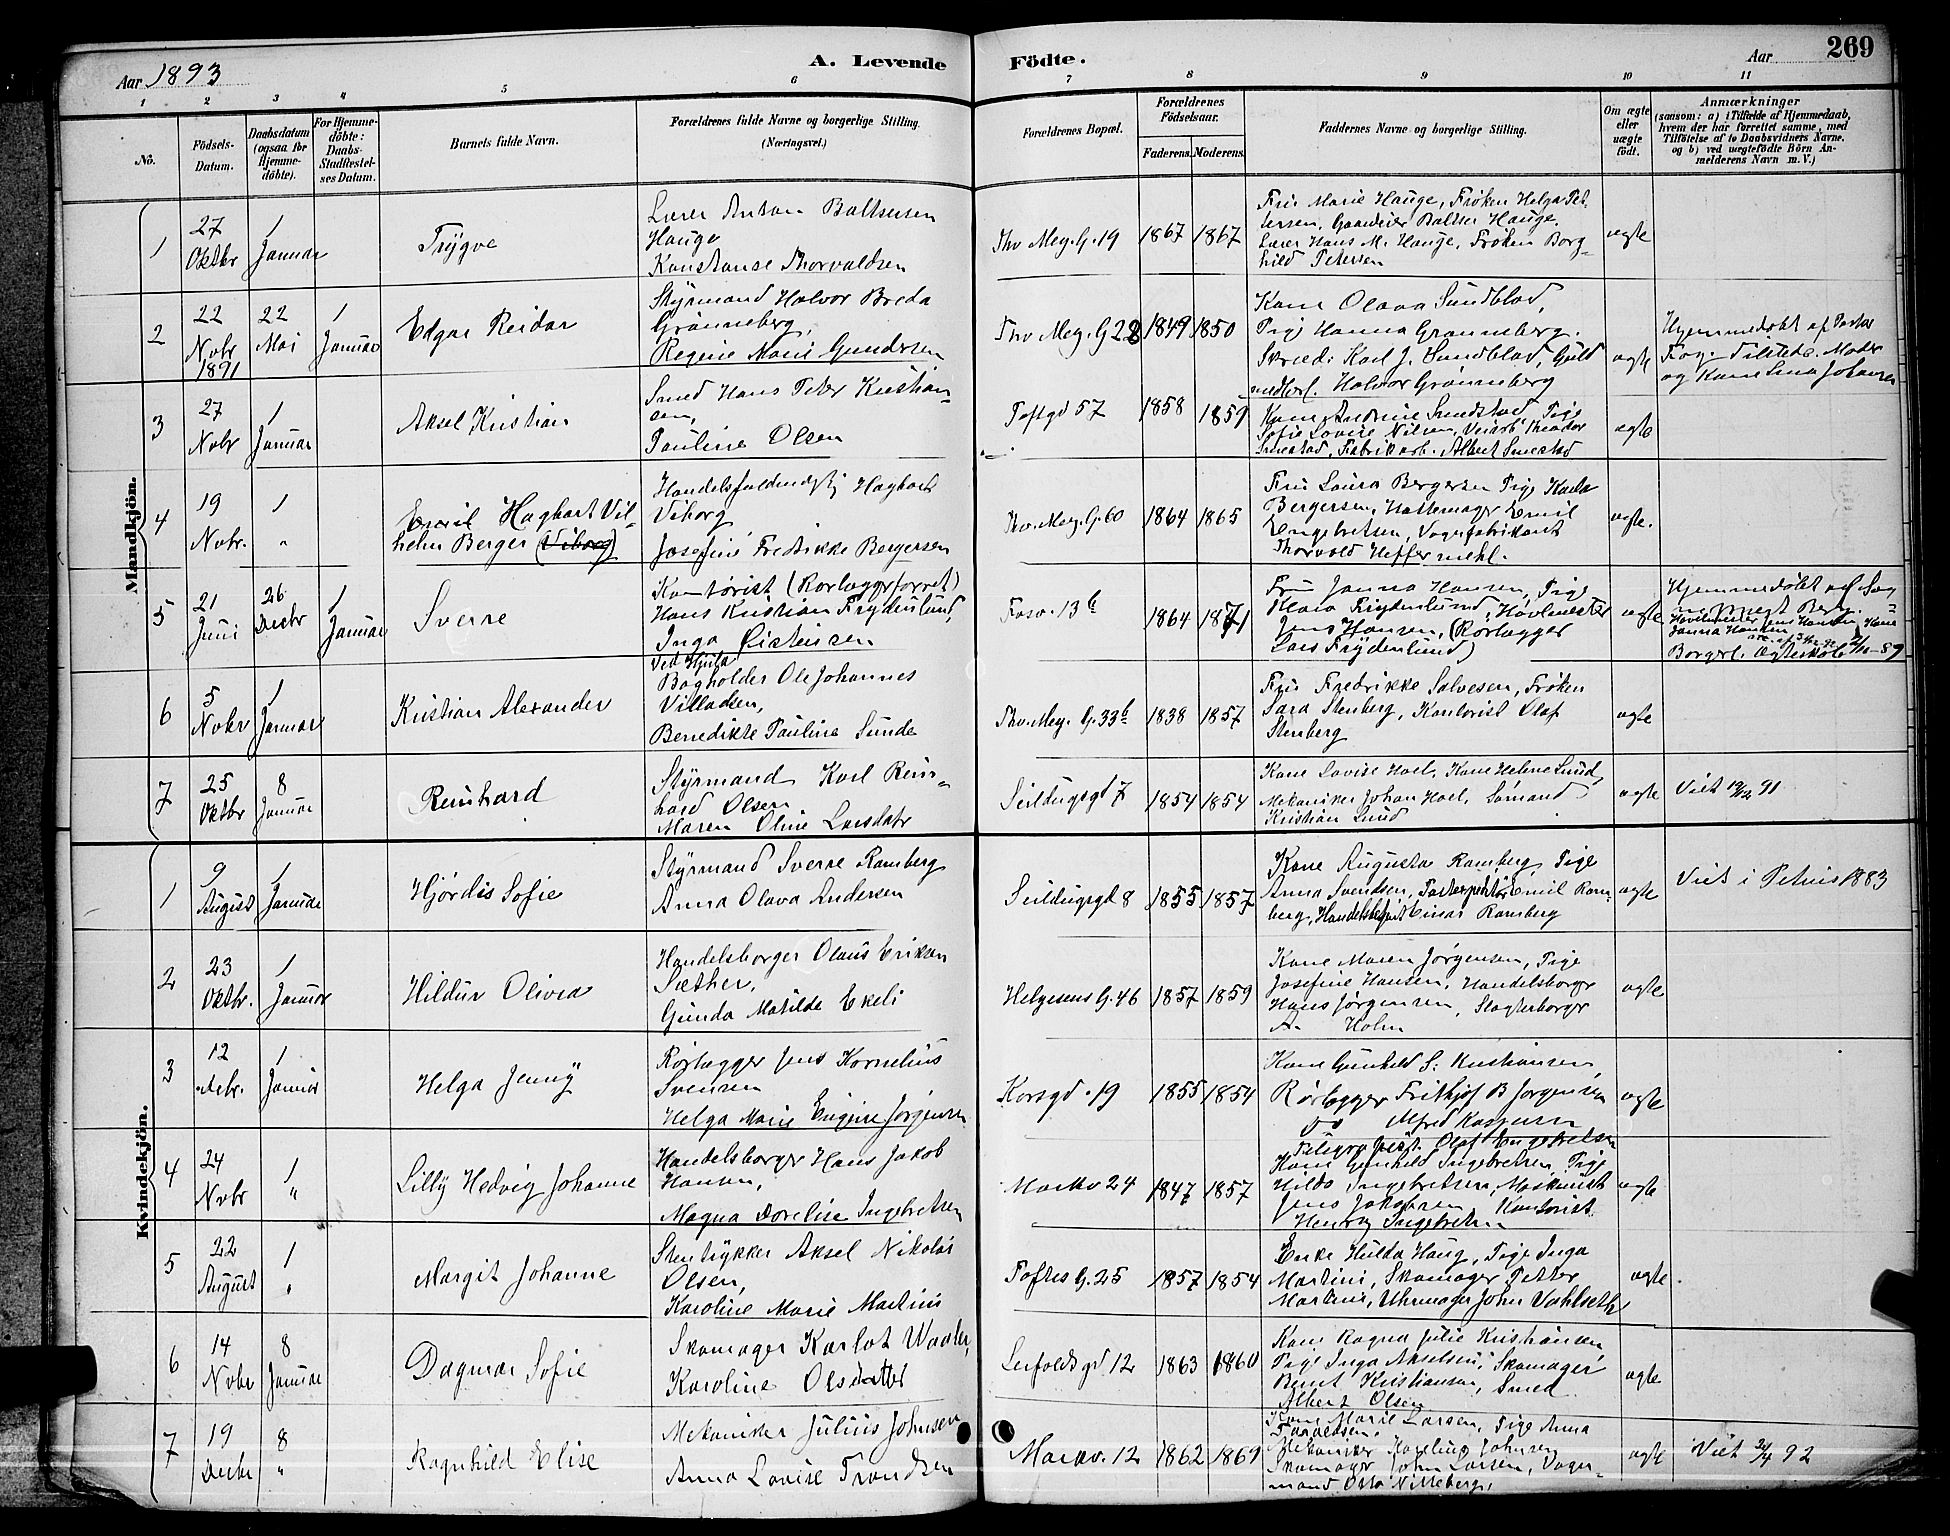 Aar 1893
A. Levende
Födte.
Aar
269
1 2 3 4 5 6 7 8 9 10 11
No.
Födsels-
Datum.
Daabsdatum
(ogsaa for
Hjemme-
döbte).
For Hjemme-
döbte:
Daabs-
Stadfæstel-
ses Datum.
Barnets fulde Navn.
Forældrenes fulde Navne og borgerlige Stilling.
(Næringsvei.)
Forældrenes Bopæl.
Forældrenes
Födselsaar.
Faderens. Moderens.
Faddernes Navne og borgerlige Stilling.
Om ægte
eller
uægte
födt.
Anmærkninger
(saasom: a) i Tilfælde af Hjemmedaab,
hvem der har forrettet samme, med
Tilföielse af to Daabsvidners Navne.
og b) ved uægtefödte Börn An-
melderens Navn m. V.)
Mandkjön.
1
27
Oktbr
1
Januar
Trygve
Lærer Anton Baltsersen
Hauge
Konstanse Thorvaldsen
Thv Mey. G. 19
1867 1867
Fru Marie Hauge, Frøken Helga Pet-
tersen, Gaardeier Baltser Hauge,
Lærer Hans M. Hauge, Frøken Borg-
hild Petersen
ægte
2
22
Novbr
1891
22
Mai
1
Januar
Edgar Reidar
Styrmand Halvor Breda
Grønneberg,
Regine Marie Gundersen
Thv Mey. G 22
1849 1850
Kone Olava Sundblad,
Pige Hanna Grønneberg.
Skræd. Karl J. Sundblad, Guld
Halvor Grønneberg
ægte
Hjemmedøbt af Pastor
Tilstede. Moder
og Kone Lina Johansen
3
27
Novbr
1
Januar
Aksel Kristian
Smed Hans Peter Kristian-
sen,
Pauline Olsen
Toftgd 57
1858 1859
Kone Andrine Smestad, Pige
Sofie Lovise Nilsen, Veiarb. Theodor
Smestad, Fabrikarb. Albert Smestad
ægte
4
19
Novbr.
1
"
Emil Hagbart Vil-
helm Berger (Viborg)
Handelsfuldmægtig Hagbart
Viborg
Josefine Fredrikke Bergersen
Thv. Mey. G. 60
1864 1865
Fru Laura Bergersen Pige Karla
Bergersen, Hattemager Emil
Engebretsen, Vognfabrikant
Thorvald Heffermehl.
ægte.
5
21
Juni
26
Decbr
1
Januar
Sverre
Kontorist (Rørlægger forret)
Hans Kristian Frydenlund,
Inga Kristensen
Fossv. 13 b
1864 1871
Fru Janna Hansen, Pige
Klara Frydenlund, Høvlmester
Jens Hansen, (Rørlægger
Lars Frydenlund)
ægte
Hjemmedøbt af
Berg.
Høvlmester Jens Hansen, Kone
Janna Hansen
Borgerl. Ægteskab
6
5
Novbr
1
Januar
Kristian Alexander
Bogholder Ole Johannes
Villadsen,
Benedikte Pauline Sunde
Thv. Mey. G. 33 b
1838 1857
Fru Fredrikke Salvesen, Frøken
Sara Stenberg, Kontorist Olaf
Stenberg
ægte
7
25
Oktbr
8
Januar
Reinhard
Styrmand Karl Rein-
hard Olsen
Maren Oline Larsdatr
Seildugsgd 7
1854 1854
Kone Lovise Hoel, Kone Helene Lund,
Mekaniker Johan Hoel, Sømand
Kristian Lund
ægte
Viet 19/12 91
Kvindekjön.
1
9
August
1
Januar
Hjørdis Sofie
Styrmand Sverre Ramberg
Anna Olava Andersen
Seildugsgd 8
1855 1857
Kone Augusta Ramberg, Pige
Anna Svendsen, Emil Ram-
berg, Handelsbetjent Einar Ramberg
ægte
Viet i Petrus 1883
2
23
Oktbr.
1
Januar
Hildur Olivia
Handelsborger Olaus Eriksen
Sæther,
Gunda Matilde Ekeli
Helgesens G. 46
1857 1859
Kone Maren Jørgensen, Pige
Josefine Hansen, Handelsborger
Hans Jørgensen, Slagterborger
A. Holm
ægte
3
12
Decbr.
1
Januar
Helga Jenny
Rørlægger Jens Kornelius
Svensen
Helga Marie Eugine Jørgensen
Korsgd. 19
1855 1854
Kone Gunhild S. Kristiansen,
Rørlægger Frithjof B Jørgensen
Do Alfred Kaspersen
ægte
4
24
Novbr
1
"
Lilly Hedvig Johanne
Handelsborger Hans Jakob
Hansen,
Magna Dorelise Ingebretsen
Markv 24
1847 1857
Olaf Engebretsen
Kone Gunhild Ingebretsen, Pige
Hilda Ingebretsen, Maskinist
Jens Jakobsen Kontorist
Henry Ingebretsen
ægte
5
22
August
1
"
Margit Johanne
Stentrykker Aksel Nikolai
Olsen,
Karoline Marie Martini
Toftes G. 25
1857 1854
Enke Hulda Haug, Pige Inga
Martini, Skomager Petter
Martini, Uhrmager John Vahlseth
ægte.
6
14
Novbr
8
Januar
Dagmar Sofie
Skomager Karlot Waaler,
Karoline Olsdatter
Leifoldsgd 12
1863 1860
Kone Ragna Julie Kristiansen
Pige Inga Akselsen, Skomager
Bernt Kristiansen, Smed
Albert Olsen
ægte
7
19
Decbr
8
"
Ragnhild Elise
Mekaniker Julius Johnsen
Anna Lovise Trondsen
Markv. 12
1862 1869
Kone Marie Larsen, Pige Anna
Mekaniker Karelius Johnsen
Skomager John Larsen, Vogn-
mand Otto Nitteberg,
ægte
Viet 24/4 92